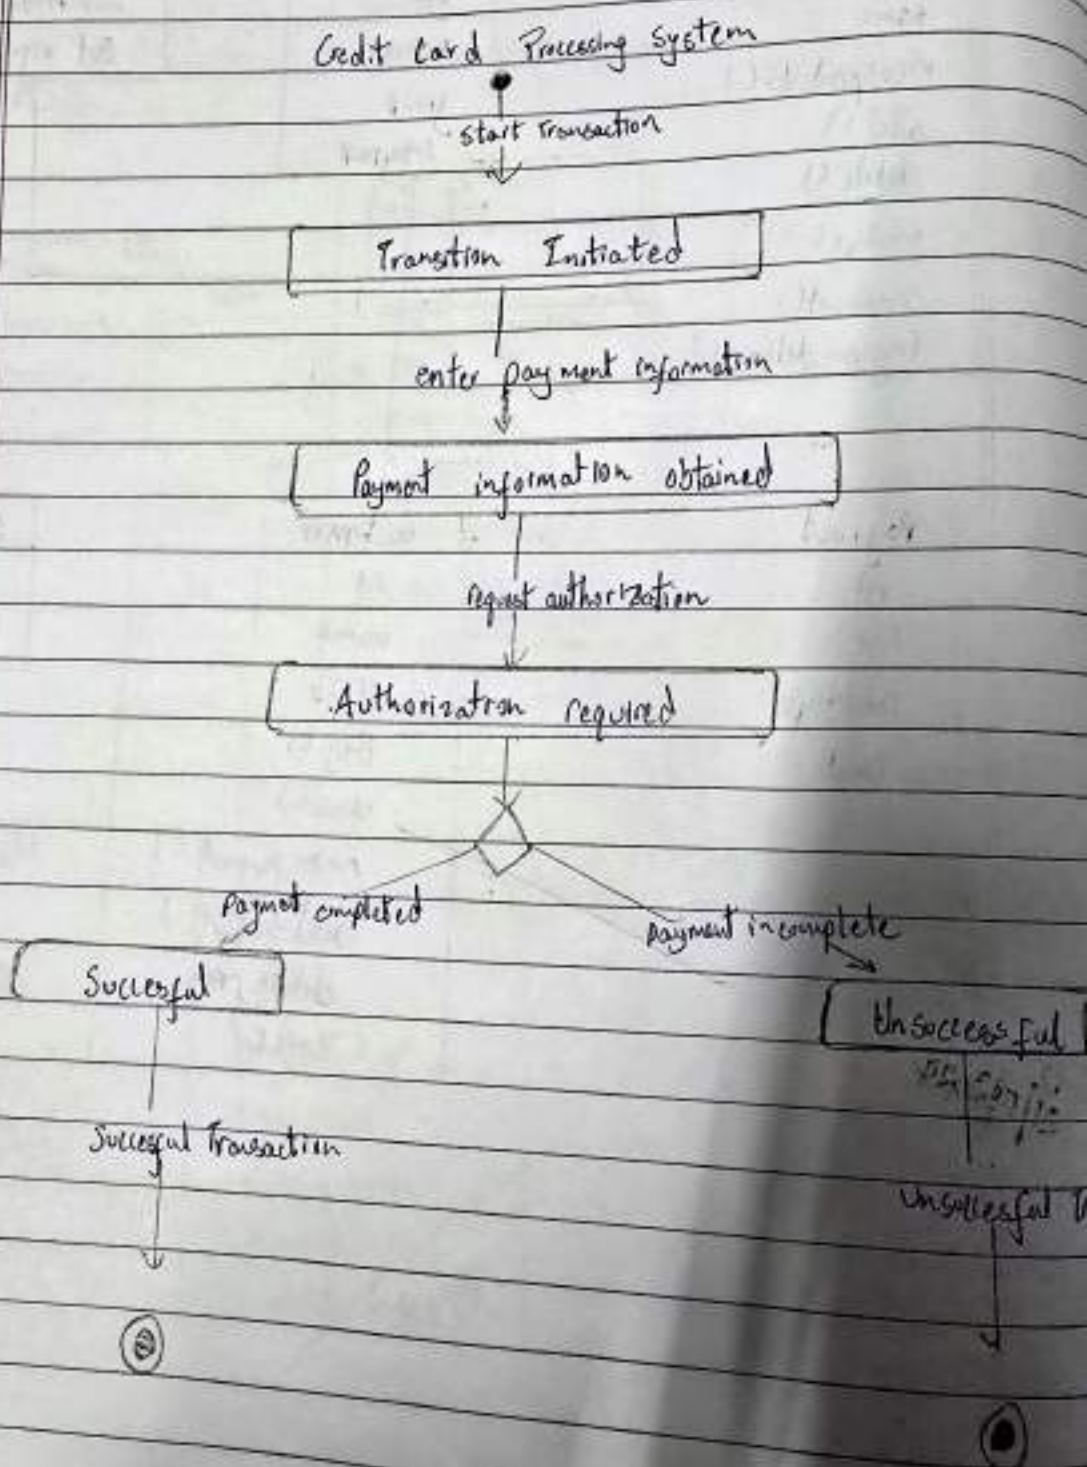 Credit Card Processing System
start Transaction
Transition Initiated
enter payment information
Payment information obtained
request authorization
Authorization required
Payment completed
payment incomplete
Succesful
Unsuccessful
Succesful Transaction
Unsuccesful